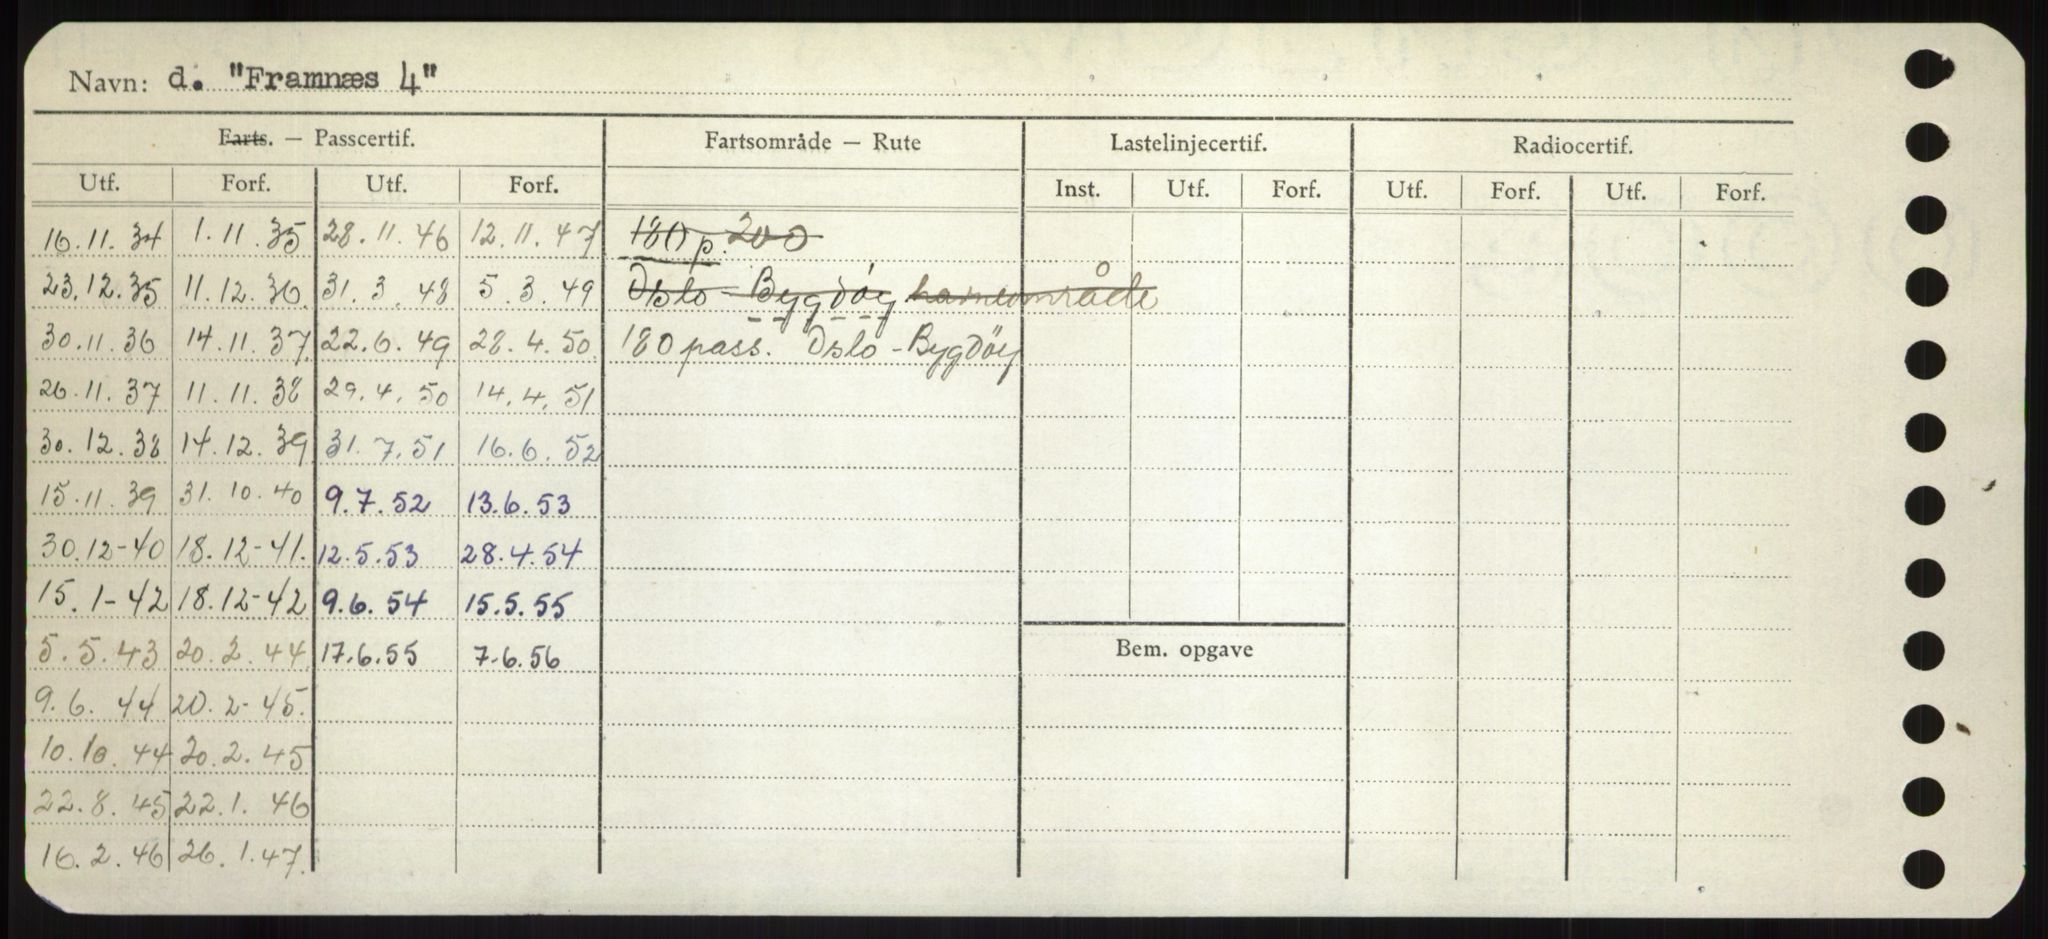 Navn: d. "Framnæs 4"
Farts. — Passcertif. Fartsområde — Rute Lastelinjecertif. Radiocertif.
Utf. Forf. Utf. Forf. Inst. Utf. Forf. Utf. Forf. Utf. Forf.
16.11.34 1.11.35 28.11.46 12.11.47 180 p. 200
23.12.35 11.12.36 31.3.48 5.3.49 Oslo - Bygdøy havneområde
30.11.36 14.11.37 22.6.49 28.4.50 180 pass. Oslo - Bygdöy
26.11.37 11.11.38 29.4.50 14.4.51
30.12.38 14.12.39 31.7.51 16.6.52
15.11.39 31.10.40 9.7.52 13.6.53
30.12-40 18.12-41. 12.5.53 28.4.54
15.1-42 18.12-42 9.6.54 15.5.55
5.5.43 20.2.44 17.6.55 7.6.56 Bem. opgave
9.6.44 20.2-45.
10.10.44 20.2.45
22.8.45 22.1.46
16.2.46 26.1.47.